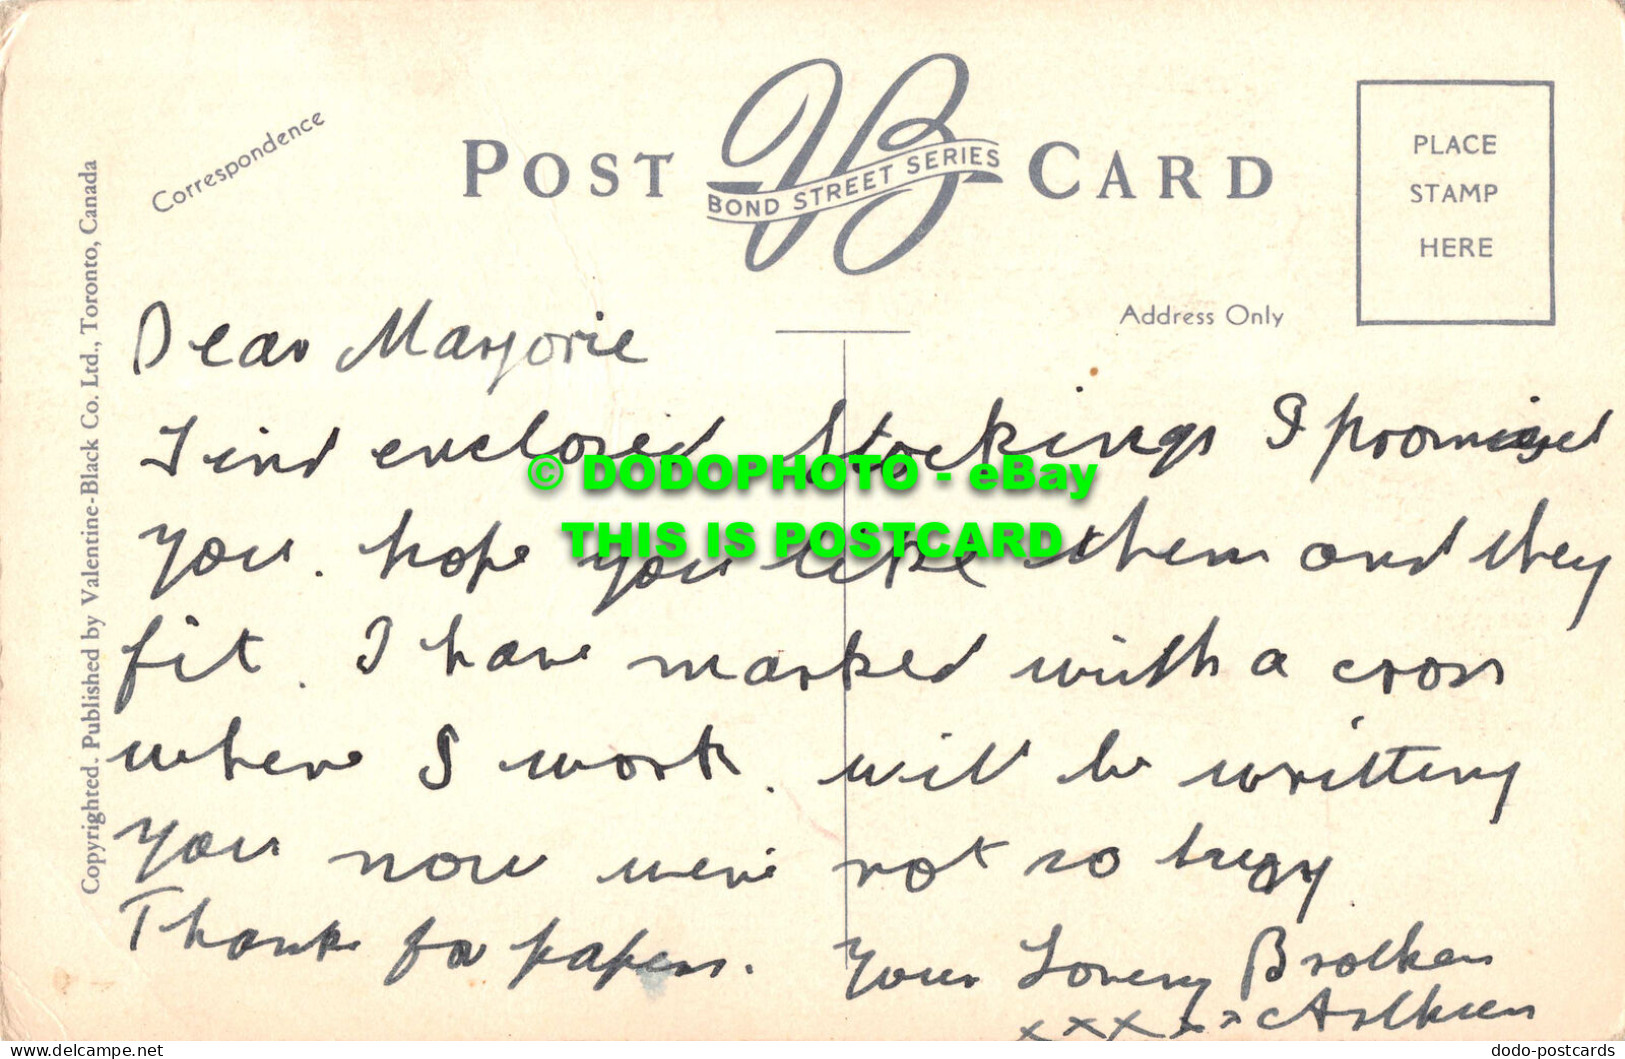 Correspondence
POST CARD
BOND STREET SERIES
PLACE
STAMP
HERE
Address Only
Copyrighted. Published by Valentine-Black Co. Ltd., Toronto, Canada
Dear Marjorie
Find enclosed Stockings I promised
you. hope you like them and they
fit. I have marked with a cross
where I work. will be writting
you now were not so busy
Thanks for papers. Your Loveing Brother
xxxxx Arthur
© DODOPHOTO - eBay
THIS IS POSTCARD
the-postcard.com
dodo-postcards